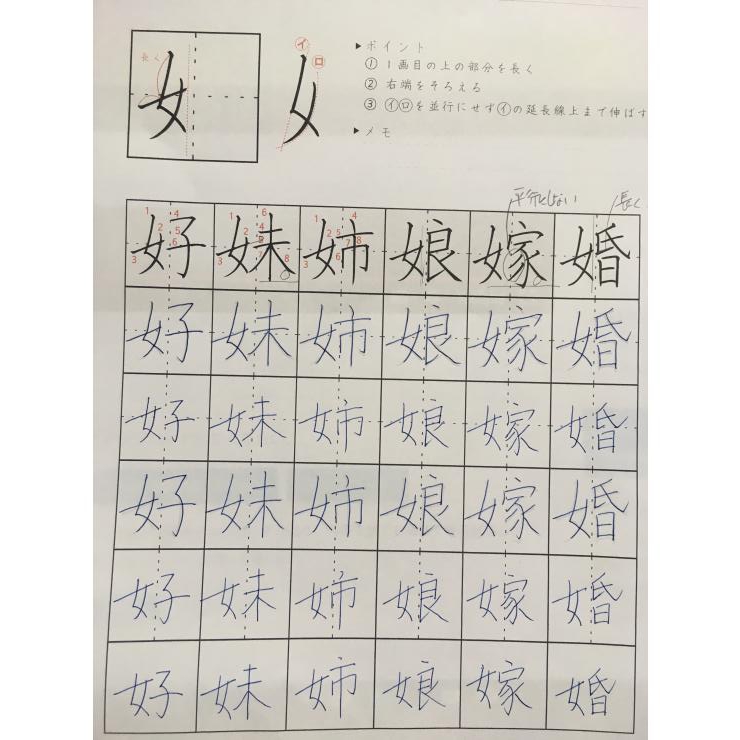 長く
女
イ
ロ
女
▶ポイント
① 1画目の上の部分を長く
② 右端をそろえる
③ ㋑㋺を並行にせず㋑の延長線上まで伸ばす
▶メモ
平行にしない
長く
好 妹 姉 娘 嫁 婚
好 妹 姉 娘 嫁 婚
好 妹 姉 娘 嫁 婚
好 妹 姉 娘 嫁 婚
好 妹 姉 娘 嫁 婚
好 妹 姉 娘 嫁 婚